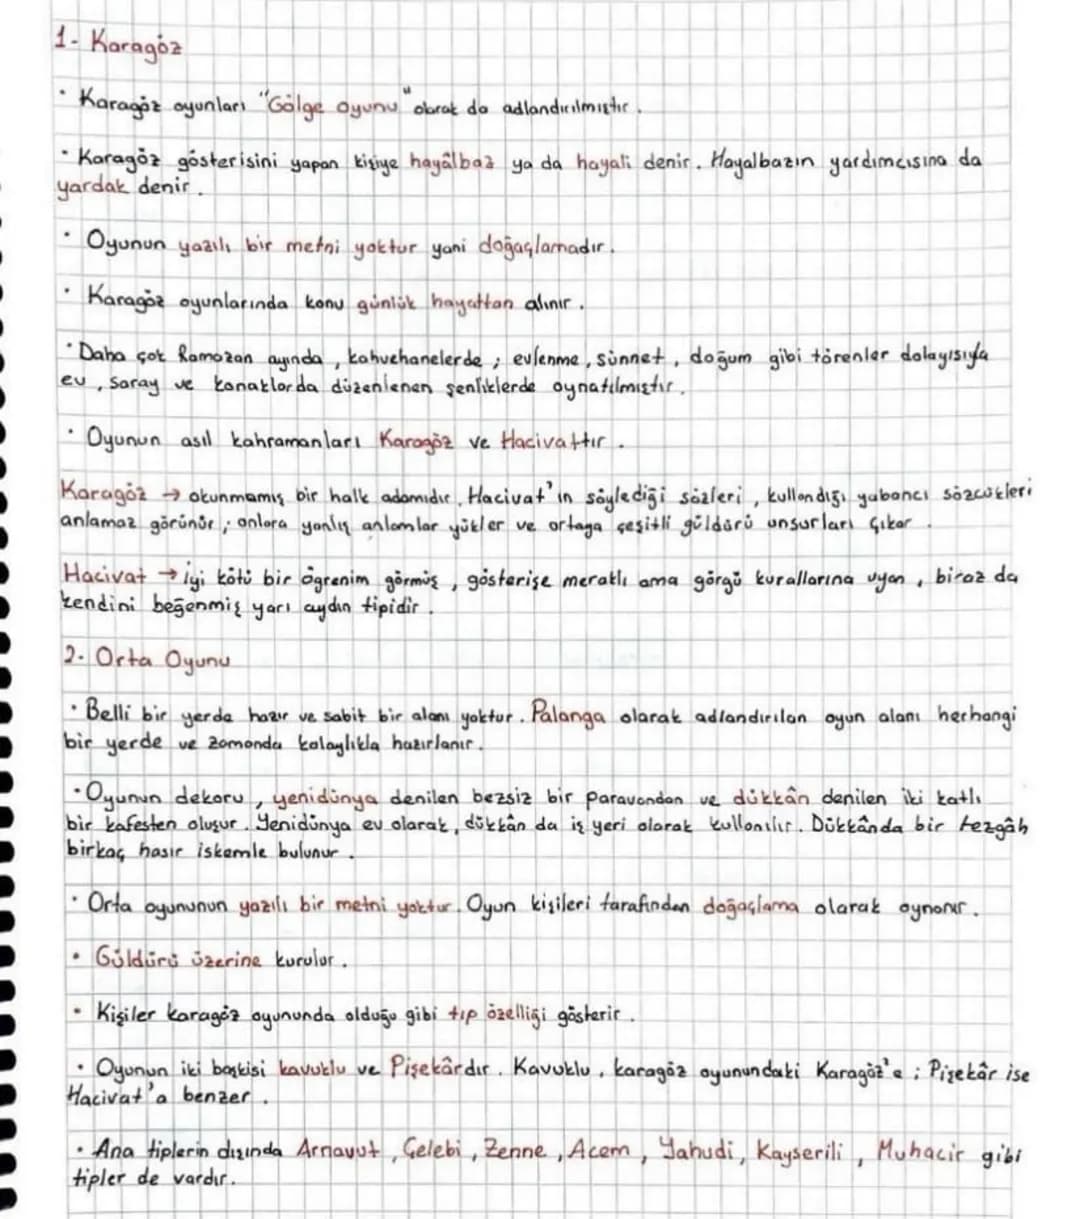 1- Karagöz
• Karagöz oyunları "Gölge oyunu" olarak da adlandırılmıştır.
• Karagöz gösterisini yapan kişiye hayâlbaz ya da hayali denir. Hayalbazın yardımcısına da
yardak denir.
• Oyunun yazılı bir metni yoktur yani doğaçlamadır.
• Karagöz oyunlarında konu günlük hayattan alınır.
• Daha çok Ramazan ayında, kahvehanelerde; evlenme, sünnet, doğum gibi törenler dolayısıyla
ev, saray ve konaklarda düzenlenen şenliklerde oynatılmıştır.
• Oyunun asıl kahramanları Karagöz ve Hacivattır.
Karagöz → okunmamış bir halk adamıdır. Hacivat'ın söylediği sözleri, kullandığı yabancı sözcükleri
anlamaz görünür; onlara yanlış anlamlar yükler ve ortaya çeşitli güldürü unsurları çıkar.
Hacivat → iyi kötü bir öğrenim görmüş, gösterişe meraklı ama görgü kurallarına uyan, biraz da
kendini beğenmiş yarı aydın tipidir.
2- Orta Oyunu
• Belli bir yerde hazır ve sabit bir alanı yoktur. Palanga olarak adlandırılan oyun alanı herhangi
bir yerde ve zamanda kolaylıkla hazırlanır.
• Oyunun dekoru, yenidünya denilen bezsiz bir paravandan ve dükkân denilen iki katlı
bir kafesten oluşur. Yenidünya ev olarak, dükkân da iş yeri olarak kullanılır. Dükkânda bir tezgâh
birkaç hasır iskemle bulunur.
• Orta oyununun yazılı bir metni yoktur. Oyun kişileri tarafından doğaçlama olarak oynanır.
• Güldürü üzerine kurulur.
• Kişiler karagöz oyununda olduğu gibi tip özelliği gösterir.
• Oyunun iki başkişi kavuklu ve Pişekârdır. Kavuklu, karagöz oyunundaki Karagöz'e; Pişekâr ise
Hacivat'a benzer.
• Ana tiplerin dışında Arnavut, Çelebi, Zenne, Acem, Yahudi, Kayserili, Muhacir gibi
tipler de vardır.